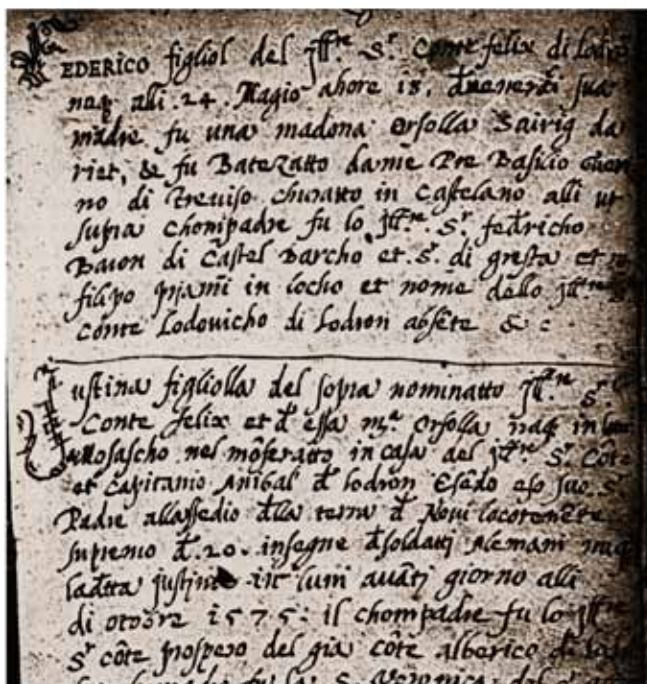 FEDERICO figliol del Ill.re S.r Conte felix di lodron
naq alli .24. Magio ahore 18. d venerdi sua
madre fu una madona Orsolla Sairig da
riet, & fu Batezatto da me Pre Basilio
no di Treviso churatto in Castelano alli ut
supra chompadre fu lo Ill.re S.r fedricho
Baron di Castel Barcho et S.r di gresta et
filipo in locho et nome dello Ill.re
Conte Lodovicho di Lodron absēte & c
Justina figliolla del sopra nominatto Ill.re S.r
Conte felix et đ essa m.a Orsolla naq in
nel mōferatto in casa del Ill.re S.r Cōte
et Capitanio Anibal đ lodron Esēdo eso suo S.r
Padre allassedio đlla terra đ Novi locotenēte
supremo đ .20. insegne đ soldatti Alemani naq
la đtta justina in luni avāti giorno alli
di otobre 1575: il chompadre fu lo Ill.re
S.r cōte prospero del gia cōte alberico di
madre fu la S. Veronica del